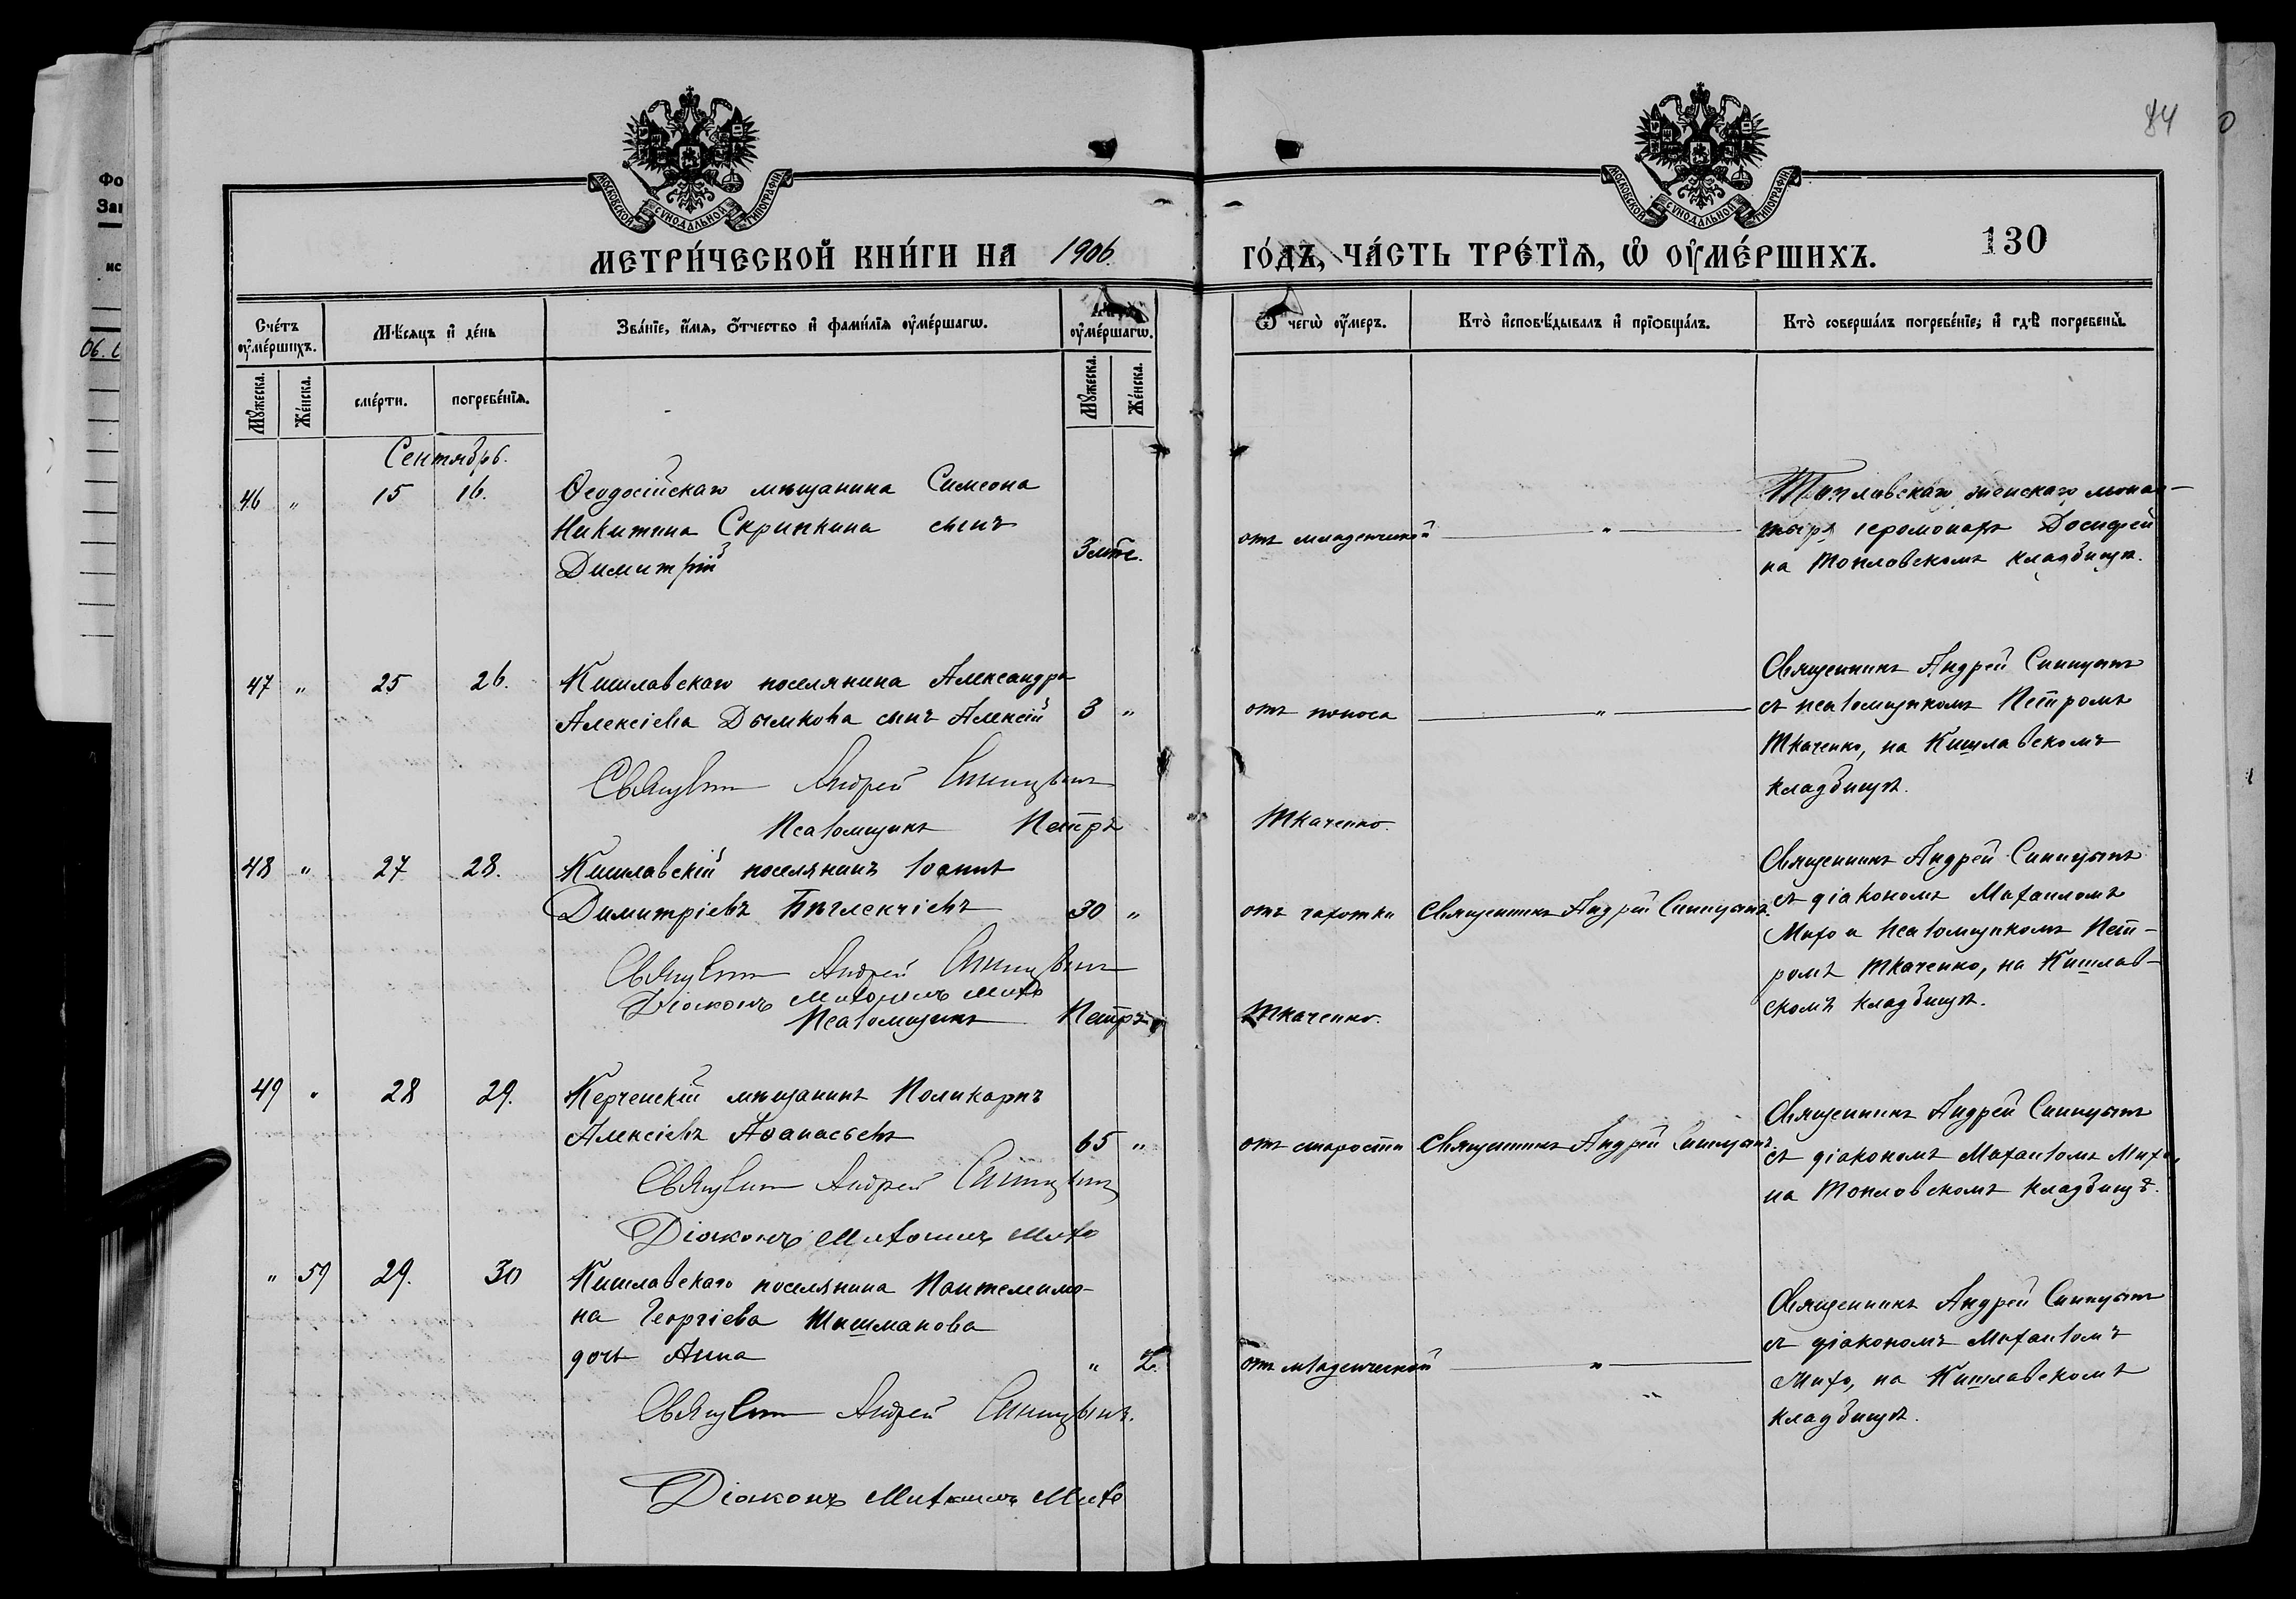 84
0
Фо
За
ис
06.
МОСКОВСКОЙ СѴНОДАЛЬНОЙ ТИПОГРАФІИ
МОСКОВСКОЙ СѴНОДАЛЬНОЙ ТИПОГРАФІИ
МЕТРИ́ЧЕСКОЙ КНИ́ГИ НА 1906. ГО́ДЪ, ЧА́СТЬ ТРЕ́ТІѦ, Ѿ ОУ҆МЕ́РШИХЪ.
130
Сче́тъ оу҆ме́ршихъ.
Мѣ́сяцъ и҆ де́нь
Зва́нїе, и҆́мя, ѻ҆́тчество и҆ фами́лїя оу҆ме́ршагѡ.
оу҆ме́ршагѡ.
Ѿ чегѡ̀ оу҆́меръ.
Кто̀ и҆сповѣ́дывалъ и҆ прїѻбща́лъ.
Кто̀ соверша́лъ погребе́нїе; и҆ гдѣ̀ погребены̀.
Мꙋ́жеска.
Же́нска.
сме́рти.
погребе́нїѧ.
Мꙋ́жеска.
Же́нска.
Сентябрь.
46 " 15 16. Ѳеодосійскаго мѣщанина Симеона
Никитина Скрипкина сынъ
Димитрій
3 мѣс.
отъ младенческой — " —
Топловскаго женскаго монас-
тыря іеромонахъ Досифей
на Топловскомъ кладбищѣ.
47 " 25 26. Кишлавскаго поселянина Александра
Алексіева Дымкова сынъ Алексій 3 "
отъ поноса — " —
Священникъ Андрей Синицынъ
съ псаломщикомъ Петромъ
Ткаченко, на Кишлавскомъ
кладбищѣ.
Священникъ Андрей Синицынъ
Псаломщикъ Петръ Ткаченко.
48 " 27 28. Кишлавскій поселянинъ Іоаннъ
Димитріевъ Бѣглекчіевъ 30 "
отъ чахотки Священникъ Андрей Синицынъ.
Священникъ Андрей Синицынъ
съ діакономъ Михаиломъ
Михо и псаломщикомъ Пет-
ромъ Ткаченко, на Кишлав-
скомъ кладбищѣ.
Священникъ Андрей Синицынъ
Діаконъ Михаилъ Михо
Псаломщикъ Петръ Ткаченко.
49 " 28 29. Керченскій мѣщанинъ Поликарпъ
Алексіевъ Аѳанасьевъ 65 "
отъ старости Священникъ Андрей Синицынъ.
Священникъ Андрей Синицынъ
съ діакономъ Михаиломъ Михо,
на Топловскомъ кладбищѣ.
Священникъ Андрей Синицынъ
Діаконъ Михаилъ Михо
" 59 29. 30 Кишлавскаго поселянина Пантелеимо-
на Георгіева Шишманова
дочь Анна " 2.
отъ младенческой — " —
"
Священникъ Андрей Синицынъ
съ діакономъ Михаиломъ
Михо, на Кишлавскомъ
кладбищѣ.
Священникъ Андрей Синицынъ.
Діаконъ Михаилъ Михо